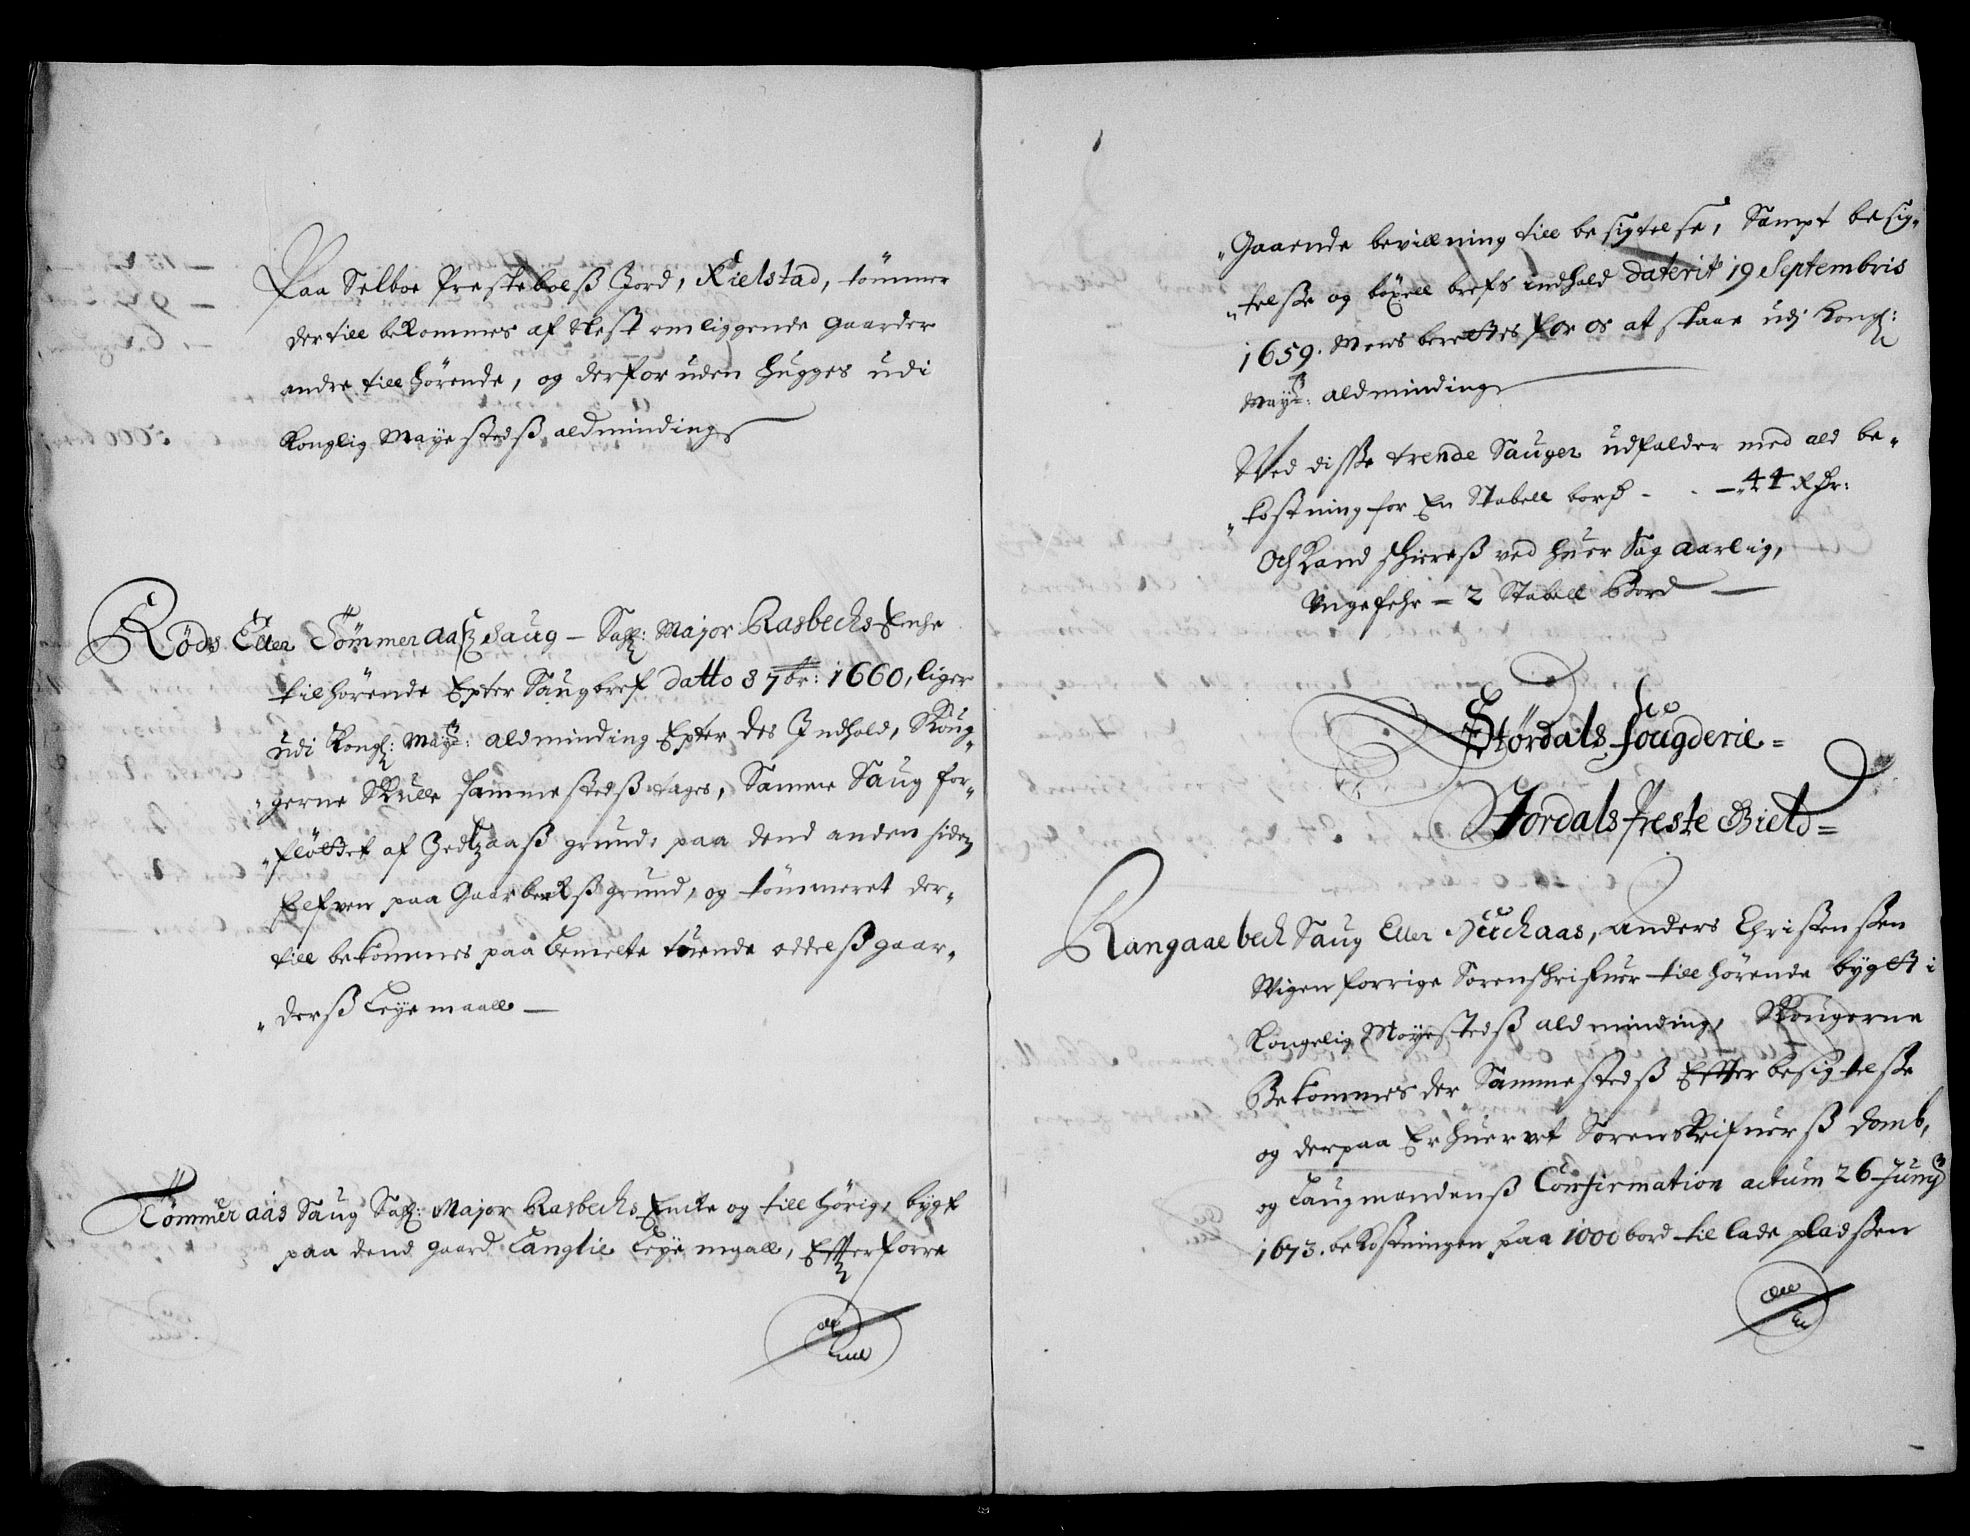 Paa Selboe Prestebolß Jord, Kielstad, tømmer
dertill bekommes af Nest omliggende Gaarder
andre tillhørende, og derforuden Hugges udi
Konglig Mayestedß aldminding
Røds Eller Tømmeraaß Saug - Sahl: Major Rasbechs Enche
tilhørende Epter Saugbref datto 8 7br: 1660, liger
udi Kongl: Mayß: aldminding Epter des Indhold, Skoug-
gerne Skulle sammestedß tages, Samme Saug for-
fløttet af Jedtzaaß grund, paa dend anden siden
Elfven paa Gaarbekß grund, og tømmeret der-
till bekommes paa bemelte tuende oddelß gaar-
derß Leyemaall -
Tømmeraas Saug Sahl: Major Rasbechs Encke og till hørig, bygt
paa dend gaard Langlie Leye maall, Effterforre
Gaaende bevillning till besigtelse, Sampt besig-
telse og bøxell brefs indhold daterit 19 Septembris
1659. Mens berettes for os at staae udj Kongl:
Mayß: aldminding
Ved disse trende Sauger udfalder med ald be-
kostning for En Stabell bord - - 44 Rdr:
Och Kand schiereß ved huer Sag aarlig,
Ungefehr - 2 Stabell Bord
Størdals fougderie =
Stordals Preste Gield =
Rangaae bech Saug Eller Heichaas, Anders Christenssen
Wigen forrige Sorenschrifuer till hørende bygtt i
Kongelig Mayestedß aldminding, Skougerne
Bekommes der Sammestedß Effter besigtelsse
og derpaa Erhuervet Sorenskrifuerß domb,
og Laugmandenß Confirmation actum 26 Junij
1673. bekostningen paa 1000 bord til lade pladssen